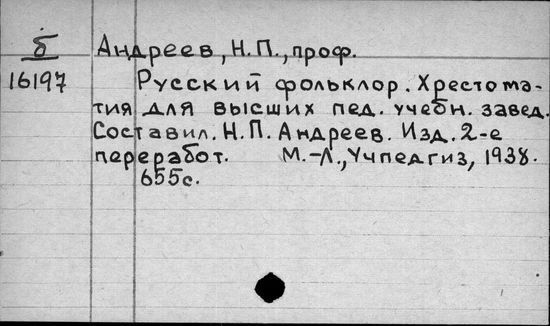 б Андреев, Н.П., проф.
16197 Русский фольклор. Хрестома-
тия для высших пед. учебн. завед.
Составил. Н.П. Андреев. Изд. 2-е
переработ. М.-Л., Учпедгиз, 1938.
655с.